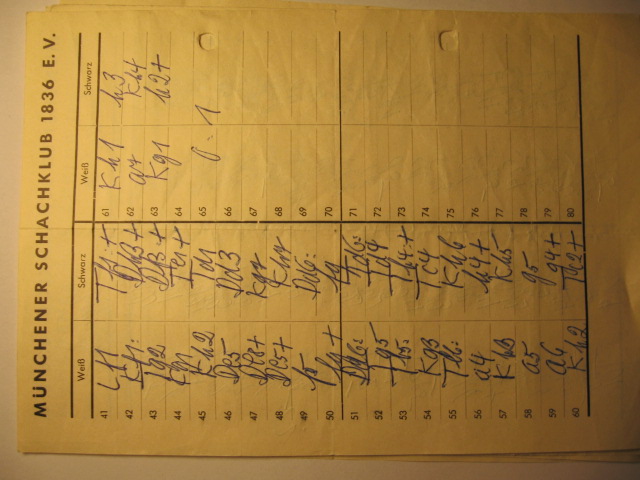 MÜNCHENER SCHACHKLUB 1836 E.V.
Weiß Schwarz Weiß Schwarz
41 Lf1 Tf1+ 61 Kh1 h3
42 Kf1: Dh3+ 62 a7 Kh4
43 Tg2 Df3+ 63 Kg1 h2+
44 Kg1 Te1+ 64
45 Kh2 Td1 65 0:1
46 De5 Dd3 66
47 De8+ Kg7 67
48 De5+ Kh7 68
49 f5 69
50 70
51 71
52 Tg5 Td4 72
53 Tf5: Th4+ 73
54 Kg3 Tc4 74
55 Kh6 75
56 a4 h4+ 76
57 Kh3 Kh5 77
58 a5 g5 78
59 a6 g4+ 79
60 Kh2 80